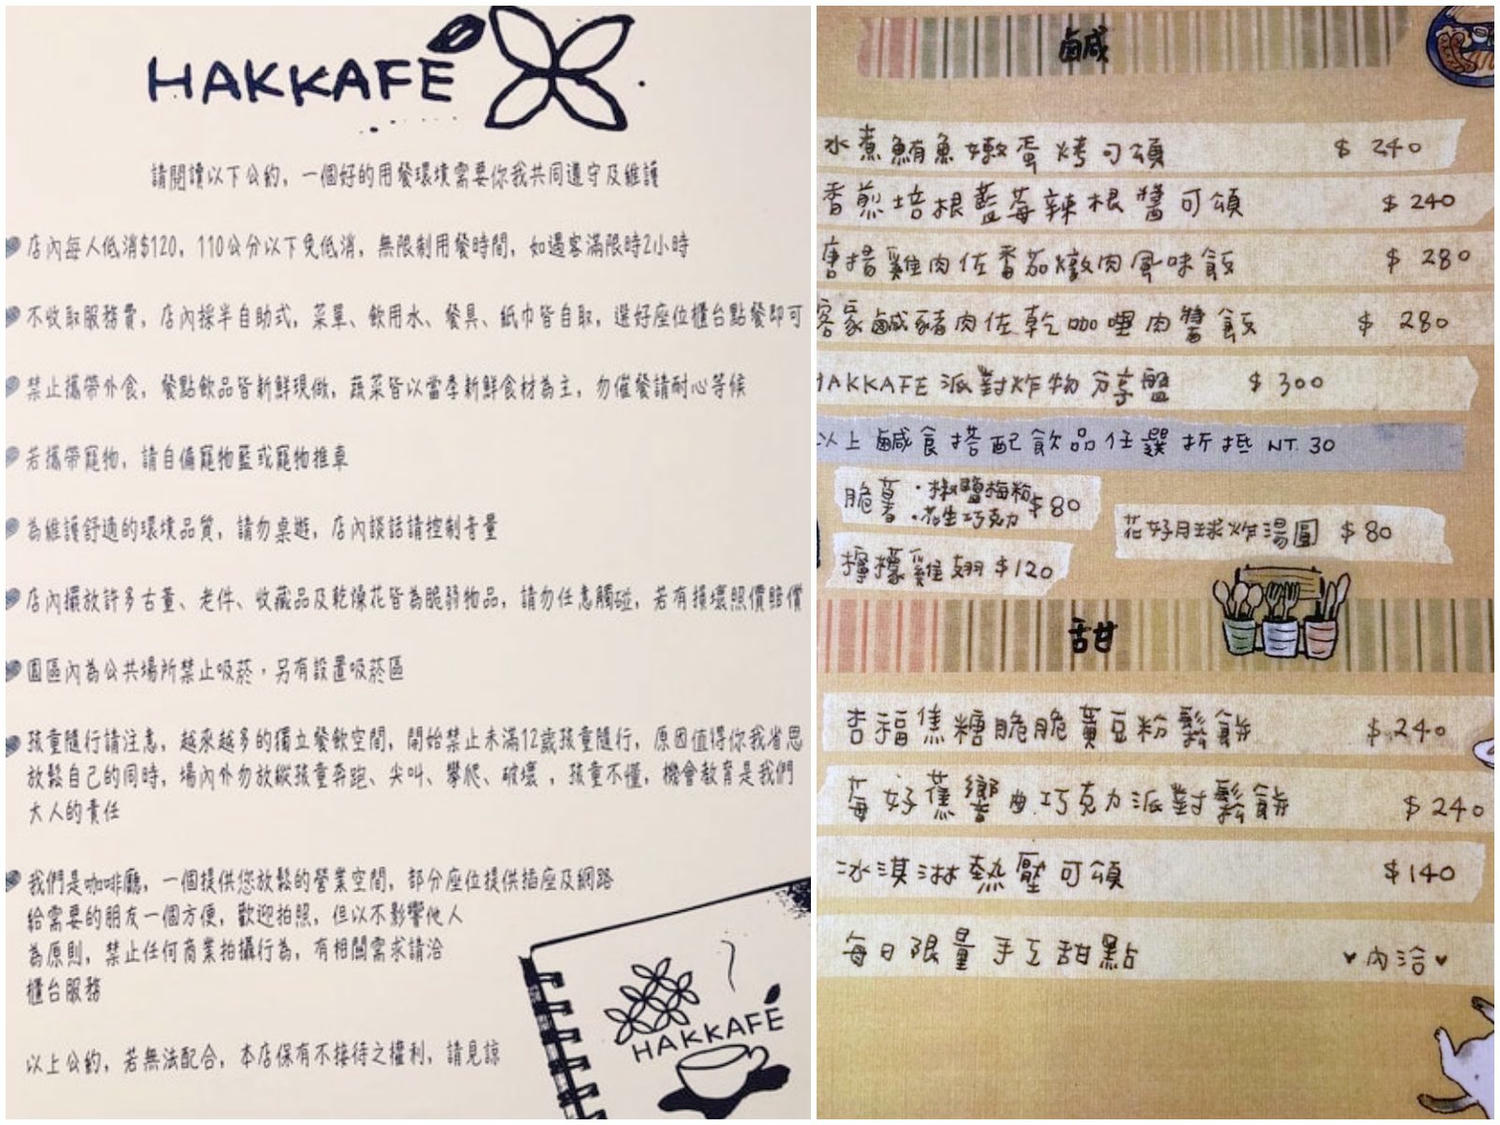 HAKKAFE
請閱讀以下公約，一個好的用餐環境需要你我共同遵守及維護
店內每人低消$120，110公分以下免低消，無限制用餐時間，如遇客滿限時2小時
不收取服務費，店內採半自助式，菜單、飲用水、餐具、紙巾皆自取，選好座位櫃台點餐即可
禁止攜帶外食，餐點飲品皆新鮮現做，蔬菜皆以當季新鮮食材為主，勿催餐請耐心等候
若攜帶寵物，請自備寵物籃或寵物推車
為維護舒適的環境品質，請勿桌遊，店內談話請控制音量
店內擺放許多古董、老件、收藏品及乾燥花皆為脆弱物品，請勿任意觸碰，若有損壞照價賠償
園區內為公共場所禁止吸菸，另有設置吸菸區
孩童隨行請注意，越來越多的獨立餐飲空間，開始禁止未滿12歲孩童隨行，原因值得你我省思
放鬆自己的同時，場內外勿放縱孩童奔跑、尖叫、攀爬、破壞，孩童不懂，機會教育是我們
大人的責任
我們是咖啡廳，一個提供您放鬆的營業空間，部分座位提供插座及網路
給需要的朋友一個方便，歡迎拍照，但以不影響他人
為原則，禁止任何商業拍攝行為，有相關需求請洽
櫃台服務
以上公約，若無法配合，本店保有不接待之權利，請見諒
HAKKAFÉ
鹹
水煮鮪魚嫩蛋烤可頌 $ 240
香煎培根藍莓辣根醬可頌 $ 240
唐揚雞肉佐番茄燉肉風味飯 $ 280
客家鹹豬肉佐乾咖哩肉醬飯 $ 280
HAKKAFE 派對炸物分享盤 $ 300
以上鹹食搭配飲品任選折抵 NT.30
脆薯 ・椒鹽梅粉 $80
・花生巧克力
花好月球炸湯圓 $ 80
檸檬雞翅 $120
甜
杏福焦糖脆脆黃豆粉鬆餅 $ 240
莓好蕉響曲巧克力派對鬆餅 $ 240
冰淇淋熱壓可頌 $140
每日限量手工甜點 ♥內洽♥